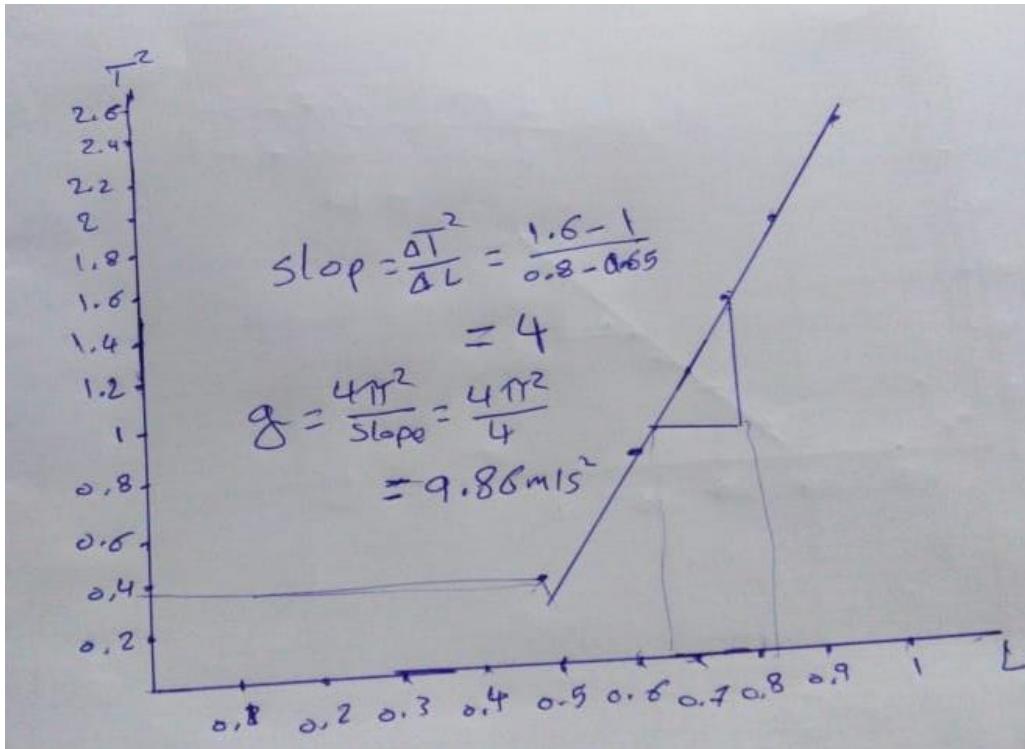 T²
2.6
2.4
2.2
2
1.8
1.6
1.4
1.2
1
0.8
0.6
0.4
0.2
slop = ΔT²/ΔL = 1.6-1/0.8-0.65
= 4
g = 4π²/slope = 4π²/4
= 9.86m/s²
0.1 0.2 0.3 0.4 0.5 0.6 0.7 0.8 0.9 1 L